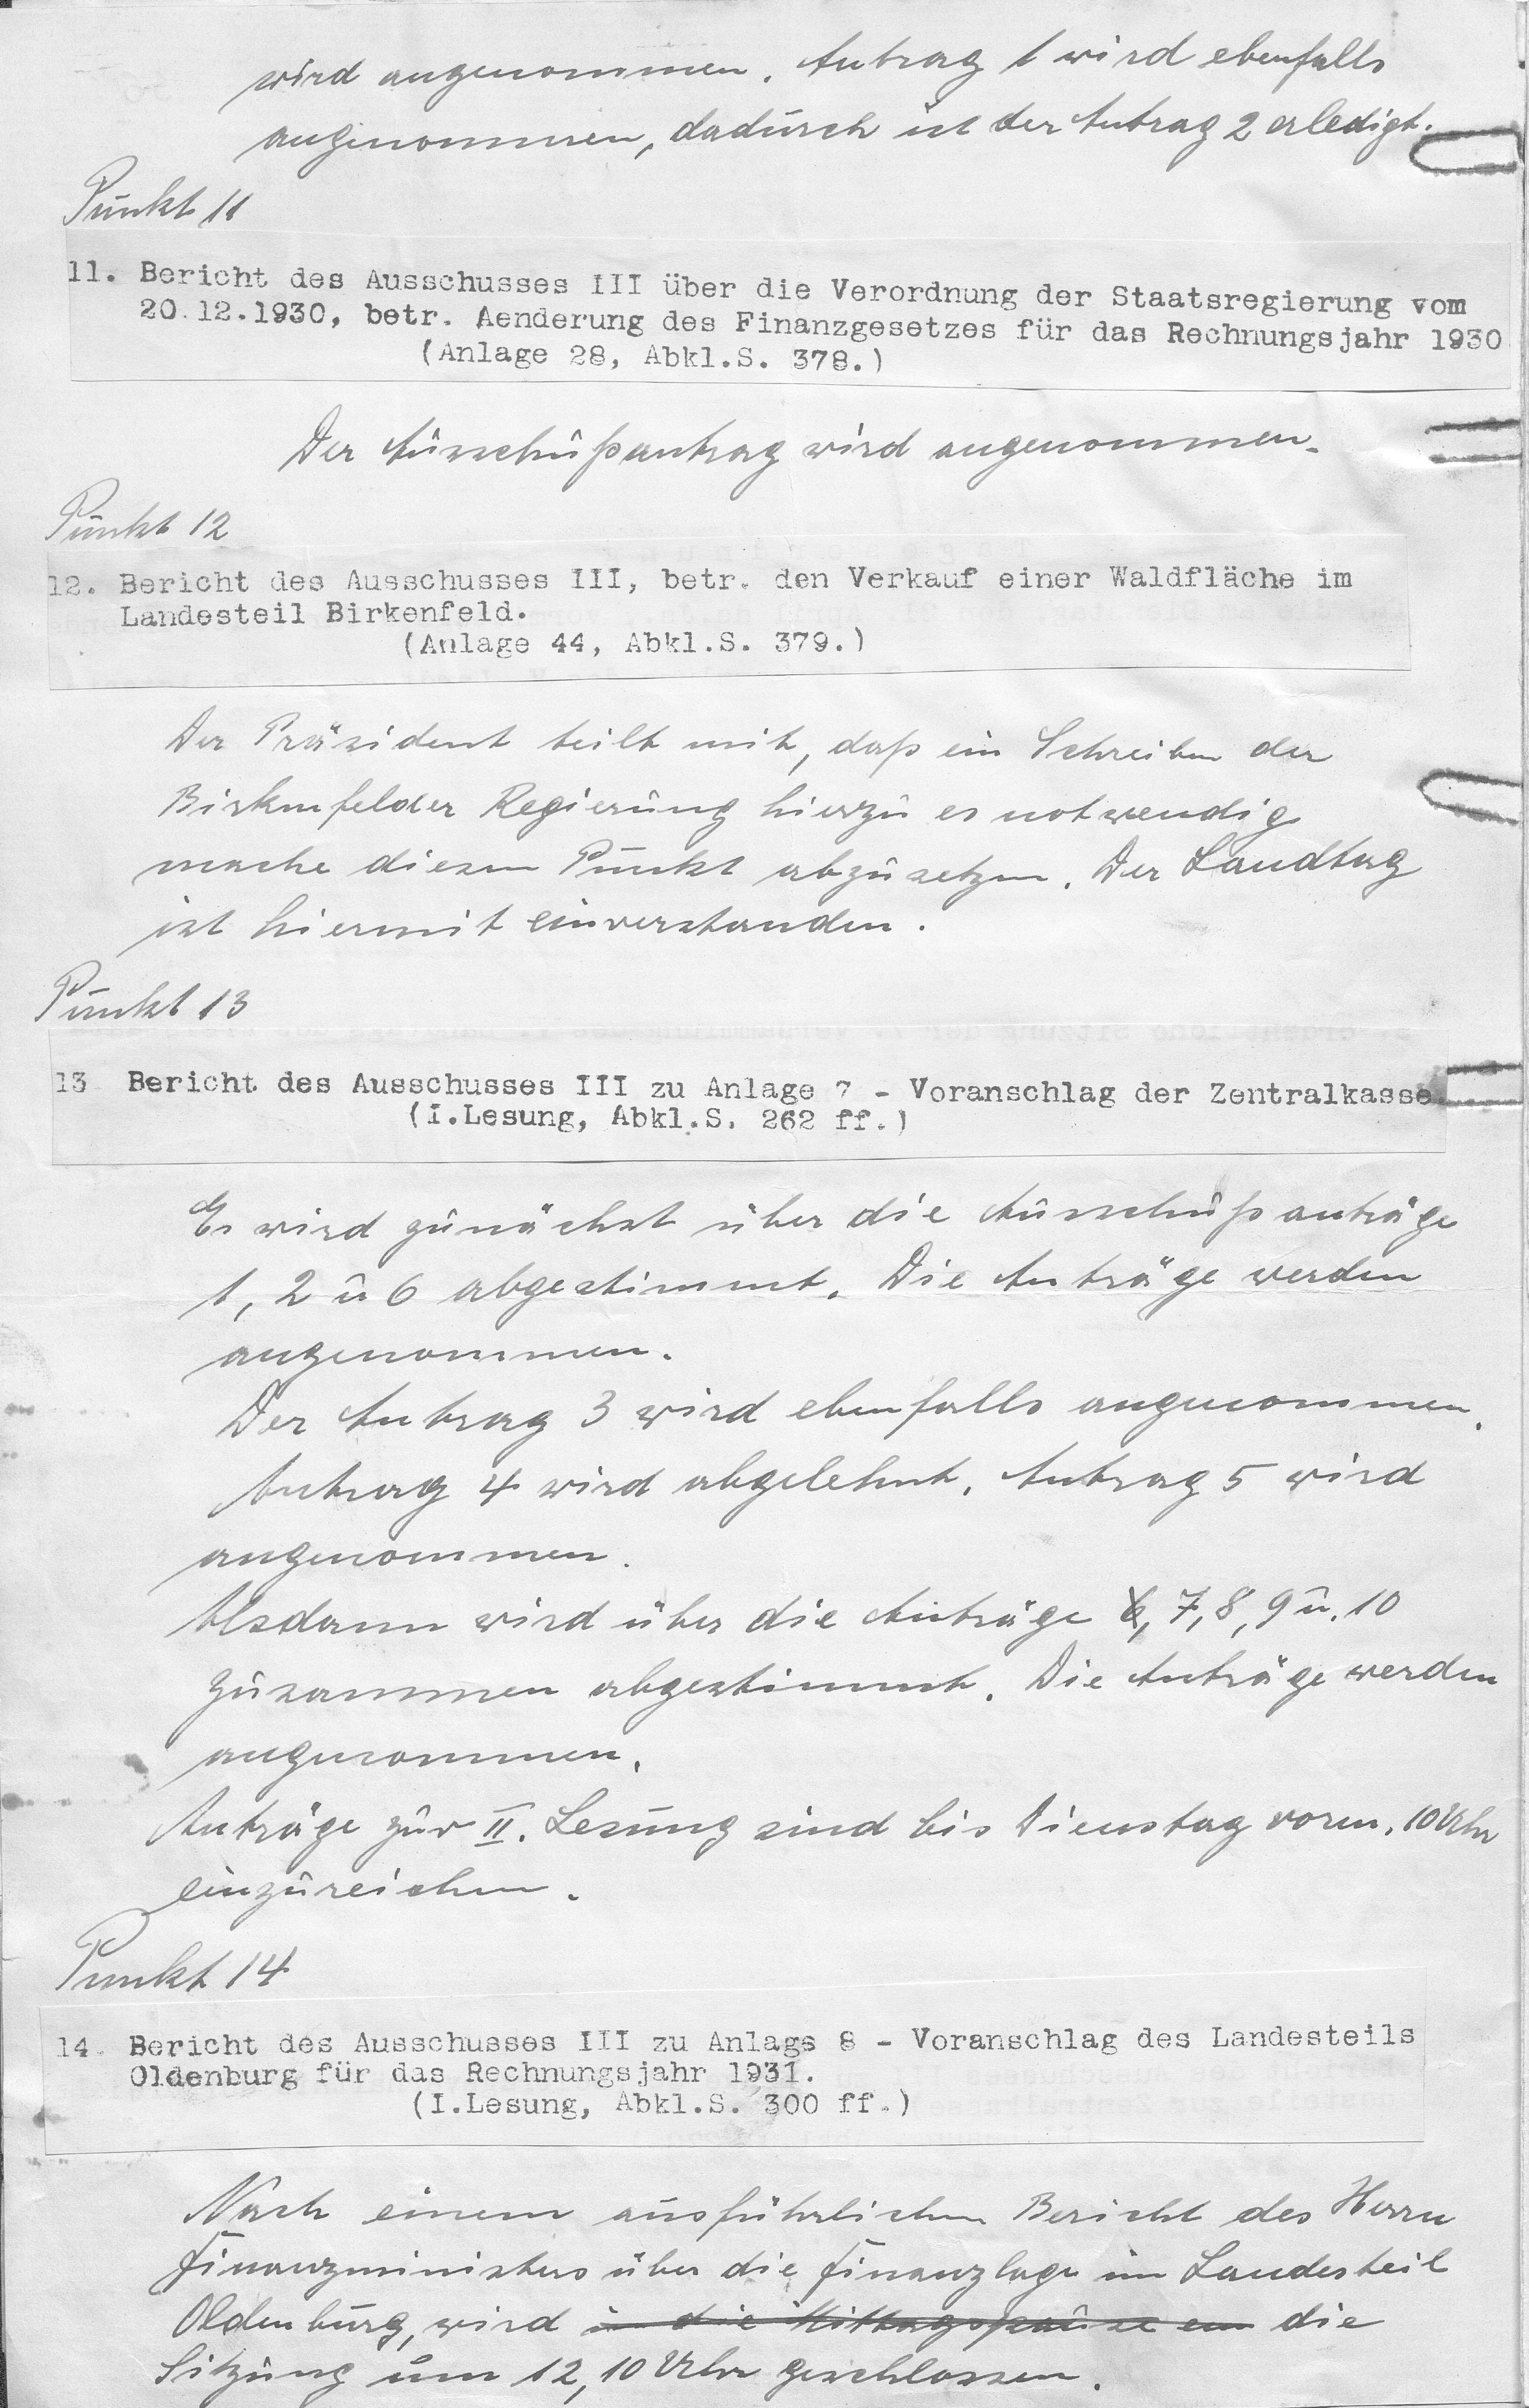 wird angenommen. Antrag 1 wird ebenfalls
angenommen, dadurch ist der Antrag 2 erledigt.
Punkt 11
11. Bericht des Ausschusses III über die Verordnung der Staatsregierung vom
20.12.1930, betr. Aenderung des Finanzgesetzes für das Rechnungsjahr 1930
(Anlage 28, Abkl.S. 378.)
Der Ausschußantrag wird angenommen.
Punkt 12
12. Bericht des Ausschusses III, betr. den Verkauf einer Waldfläche im
Landesteil Birkenfeld.
(Anlage 44, Abkl.S. 379.)
Der Präsident teilt mit, daß ein Schreiben der
Birkenfelder Regierung hierzu es notwendig
mache diesen Punkt abzusetzen. Der Landtag
ist hiermit einverstanden.
Punkt 13
13 Bericht des Ausschusses III zu Anlage 7 - Voranschlag der Zentralkasse.
(I.Lesung, Abkl.S. 262 ff.)
Es wird zunächst über die Ausschußanträge
1, 2 u 6 abgestimmt. Die Anträge werden
angenommen.
Der Antrag 3 wird ebenfalls angenommen.
Antrag 4 wird abgelehnt. Antrag 5 wird
angenommen.
Alsdann wird über die Anträge 6, 7, 8, 9 u. 10
zusammen abgestimmt. Die Anträge werden
angenommen.
Anträge zur II. Lesung sind bis Dienstag vorm. 10 Uhr
einzureichen.
Punkt 14
14. Bericht des Ausschusses III zu Anlage 8 - Voranschlag des Landesteils
Oldenburg für das Rechnungsjahr 1931.
(I.Lesung, Abkl.S. 300 ff.)
Nach einem ausführlichen Bericht des Herrn
Finanzministers über die Finanzlage im Landesteil
Oldenburg, wird in die Mittagspause ein die
Sitzung um 12,10 Uhr geschlossen.